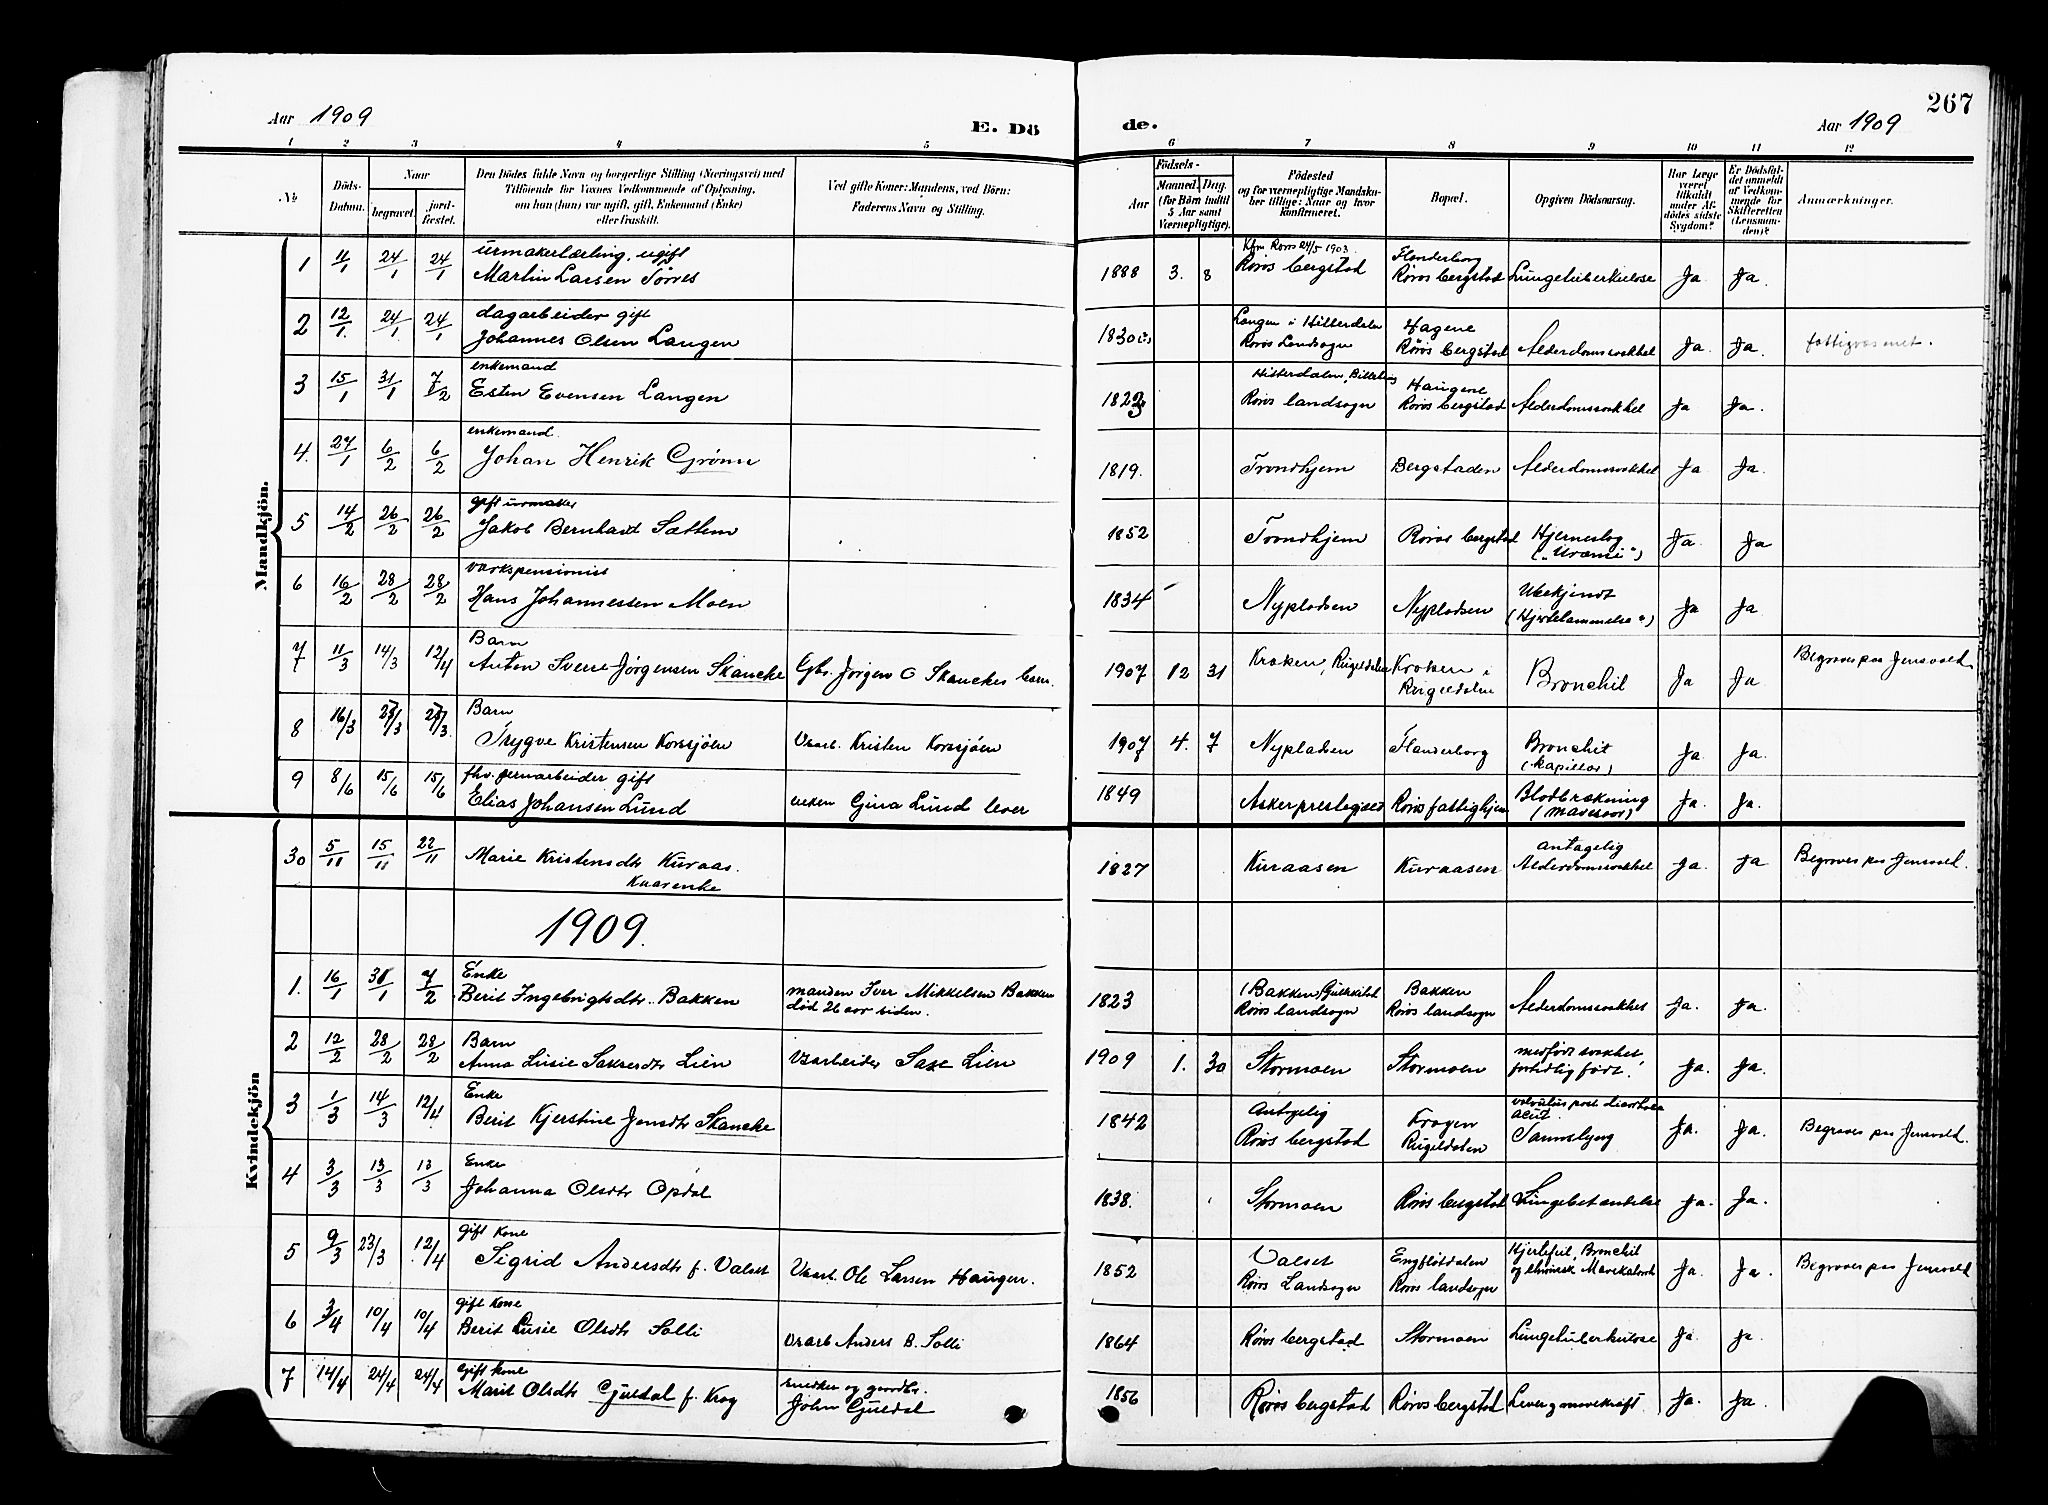 267
Aar 1909
E. Dö
de.
Aar 1909
1 2 3 4 5 6 7 8 9 10 11 12
№
Döds-Datum.
Naar
begravet.
jord-fæstet.
Den Dödes fulde Navn og borgerlige Stilling (Næringsvei) med
Tilföiende for Voxnes Vedkommende af Oplysning,
om han (hun) var ugift, gift, Enkemand (Enke)
eller fraskilt.
Ved gifte Koner: Mandens, ved Börn:
Faderens Navn og Stilling.
Födsels-
Aar
Maaned. Dag.
(for Börn indtil
5 Aar samt
Værnepligtige).
Födested
og for værnepligtige Mandskaber tillige: Naar og hvor
konfirmeret.
Bopæl.
Opgiven Dödsaarsag.
Har Læge
været
tilkaldt
under Afdödes sidste
Sygdom?
Er Dödsfaldet anmeldt
af Vedkommende for
Skifteretten
(Lensmanden)?
Anmærkninger.
Mandkjön.
1 11/1 24/1 24/1 urmakerlærling, ugift
Martin Larsen Törres 1888 3. 8 Kfm Röros 24/5 1903. Röros bergstad Flanderborg Röros bergstad Lungetuberkulose Ja Ja.
2 12/1 24/1 24/1 dagarbeider gift
Johannes Olsen Langen 1830 Langen i Hitterdalen Röros Landsogn Hagene Röros bergstad Alderdomssvakhet Ja. Ja. fattigvæsenet.
3 15/1 31/1 7/2 enkemand
Esten Evensen Langen 1823 Hitterdalen, Röros landsogn Haugene Röros bergstad Alderdomssvakhet Ja Ja.
4. 27/1 6/2 6/2 enkemand.
Johan Henrik Grönn 1819. Trondhjem Bergstaden Alderdomssvakhet Ja Ja.
5 14/2 26/2 26/2 gift urmaker
Jakob Bernhard Sættem 1852 Trondhjem Röros bergstad Hjerneslag ("Uræmi") Ja Ja
6 16/2 28/2 28/2 verkspensionist
Hans Johannessen Moen 1834 Nypladsen Nypladsen Ubekjendt (Hjertelammelse") Ja Ja.
7 11/3 14/3 12/4 Barn
Anton Sverre Jörgensen Skancke Gbr. Jörgen O Skanckes barn. 1907 12 31 Kroken, Rugeldalen Kroken i Rugeldalen Bronchit Ja Ja. Begraves paa Jensvold.
8 16/3 16/3 Barn
Trygve Kristensen Korssjöen Varb. Kristen Korssjöen 1907 4. 7 Nypladsen Flanderborg Bronchit (kapillær) Ja Ja.
9 8/6 15/6 15/6 fhv. jernarbeider gift
Elias Johansen Lund enken Gina Lund lever 1849 Asker prestegjeld Röros fattighjem Blodbrækning (mavesaar) Ja. Ja.
Kvindekjön
30 5/11 15/11 22/11 Marie Kristensdtr Kuraas.
Kaarenke 1827 Kuraasen Kuraasen antagelig Alderdomssvakhet Ja. Ja Begraves paa Jensvold.
1909.
1. 16/1 31/1 7/2 Enke
Berit Ingebrigtsdtr. Bakken manden Iver Mikkelsen Bakken
död 26 aar siden. 1823 (Bakken) Röros landsogn Bakken Röros landsogn Alderdomssvakhet Ja. Ja.
2 12/2 28/2 28/2 Barn
Anna Lusie Saksesdtr Lien Varbeider Saxe Lien 1909 1. 30 Stormoen Stormoen medfödt svakhet, fortidlig födt. Ja. Ja.
3 1/3 14/3 12/4 Enke
Berit Kjerstine Jensdtr Skancke 1842 Antagelig Röros bergstad Krogen Rugeldalen volvulus post acut. Tarmslyng Ja. Ja. Begraves paa Jensvold.
4 3/3 13/3 13/3 Enke
Johanna Olsdtr Opdal 1838. Stormoen Röros bergstad Lungebetændelse Ja. Ja.
5 9/3 23/3 12/4 gift kone
Sigrid Andersdtr f. Valset Varb. Ole Larsen Haugen. 1852 Valset Röros Landsogn Röros landsogn Hjertefeil, Bronchit og chronisk Mavekatarrh Ja. Ja. Begraves paa Jensvold
6 3/4 10/4 10/4 gift kone
Berit Lusie Olsdtr Solli Varb Anders B. Solli 1864 Röros bergstad Stormoen Lungetuberkulose Ja. Ja
7 14/4 24/4 24/4 gift kone
Marit Olsdtr Gjuldal f. Krog snedker og gaardbr.
John Gjuldal 1856 Röros bergstad Röros bergstad Lever og mavekræft Ja. Ja.